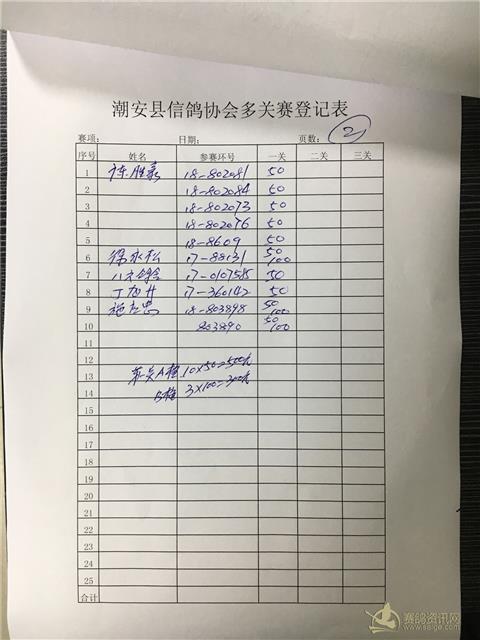 潮安县信鸽协会多关赛登记表
赛项: 日期: 页数: 2
序号 姓名 参赛环号 一关 二关 三关
1 18-802081 50
2 18-802084 50
3 18-802073 50
4 18-802076 50
5 18-8609 50
6 徐永松 17-88131 50 100
7 17-0107585 50
8 丁旭升 17-360142 50
9 施志忠 18-803898 50 100
10 803890 50 100
11
12
13 第一关A档 10×50=500元
14 B档 3×100=300元
15
16
17
18
19
20
21
22
23
24
25
合计
赛鸽资讯网
www.saige.com